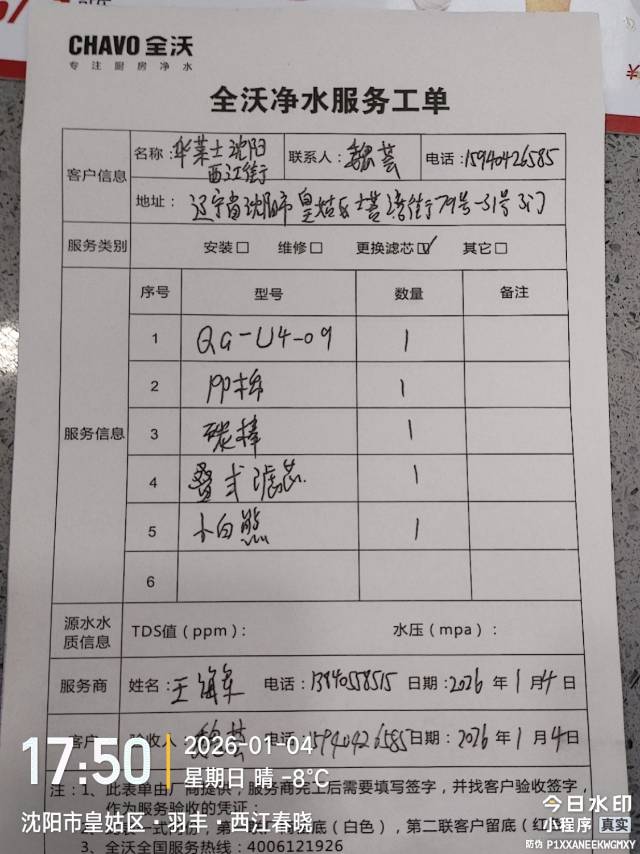 CHAVO 全沃
专注厨房净水
全沃净水服务工单
客户信息
名称：华莱士沈阳西江街 联系人：魏芸 电话：15940426585
地址：辽宁省沈阳市皇姑区塔湾街79号-31号3门
服务类别 安装□ 维修□ 更换滤芯☑ 其它□
服务信息
序号 型号 数量 备注
1 QG-U4-09 1
2 PP棉 1
3 碳棒 1
4 叠式滤芯 1
5 小白熊 1
6
源水水质信息 TDS值（ppm）： 水压（mpa）：
服务商 姓名：王海军 电话：13940558515 日期：2026年1月4日
客户 验收人：魏芸 电话：15940426585 日期：2026年1月4日
注：1、此表单由厂商提供，服务商完工后需要填写签字，并找客户验收签字，
作为服务验收的凭证；
3、全沃全国服务热线：4006121926
17:50
2026-01-04
星期日 晴 -8℃
沈阳市皇姑区·羽丰·西江春晓
今日水印
小程序 真实
防伪 P1XXANEEKWGMXY